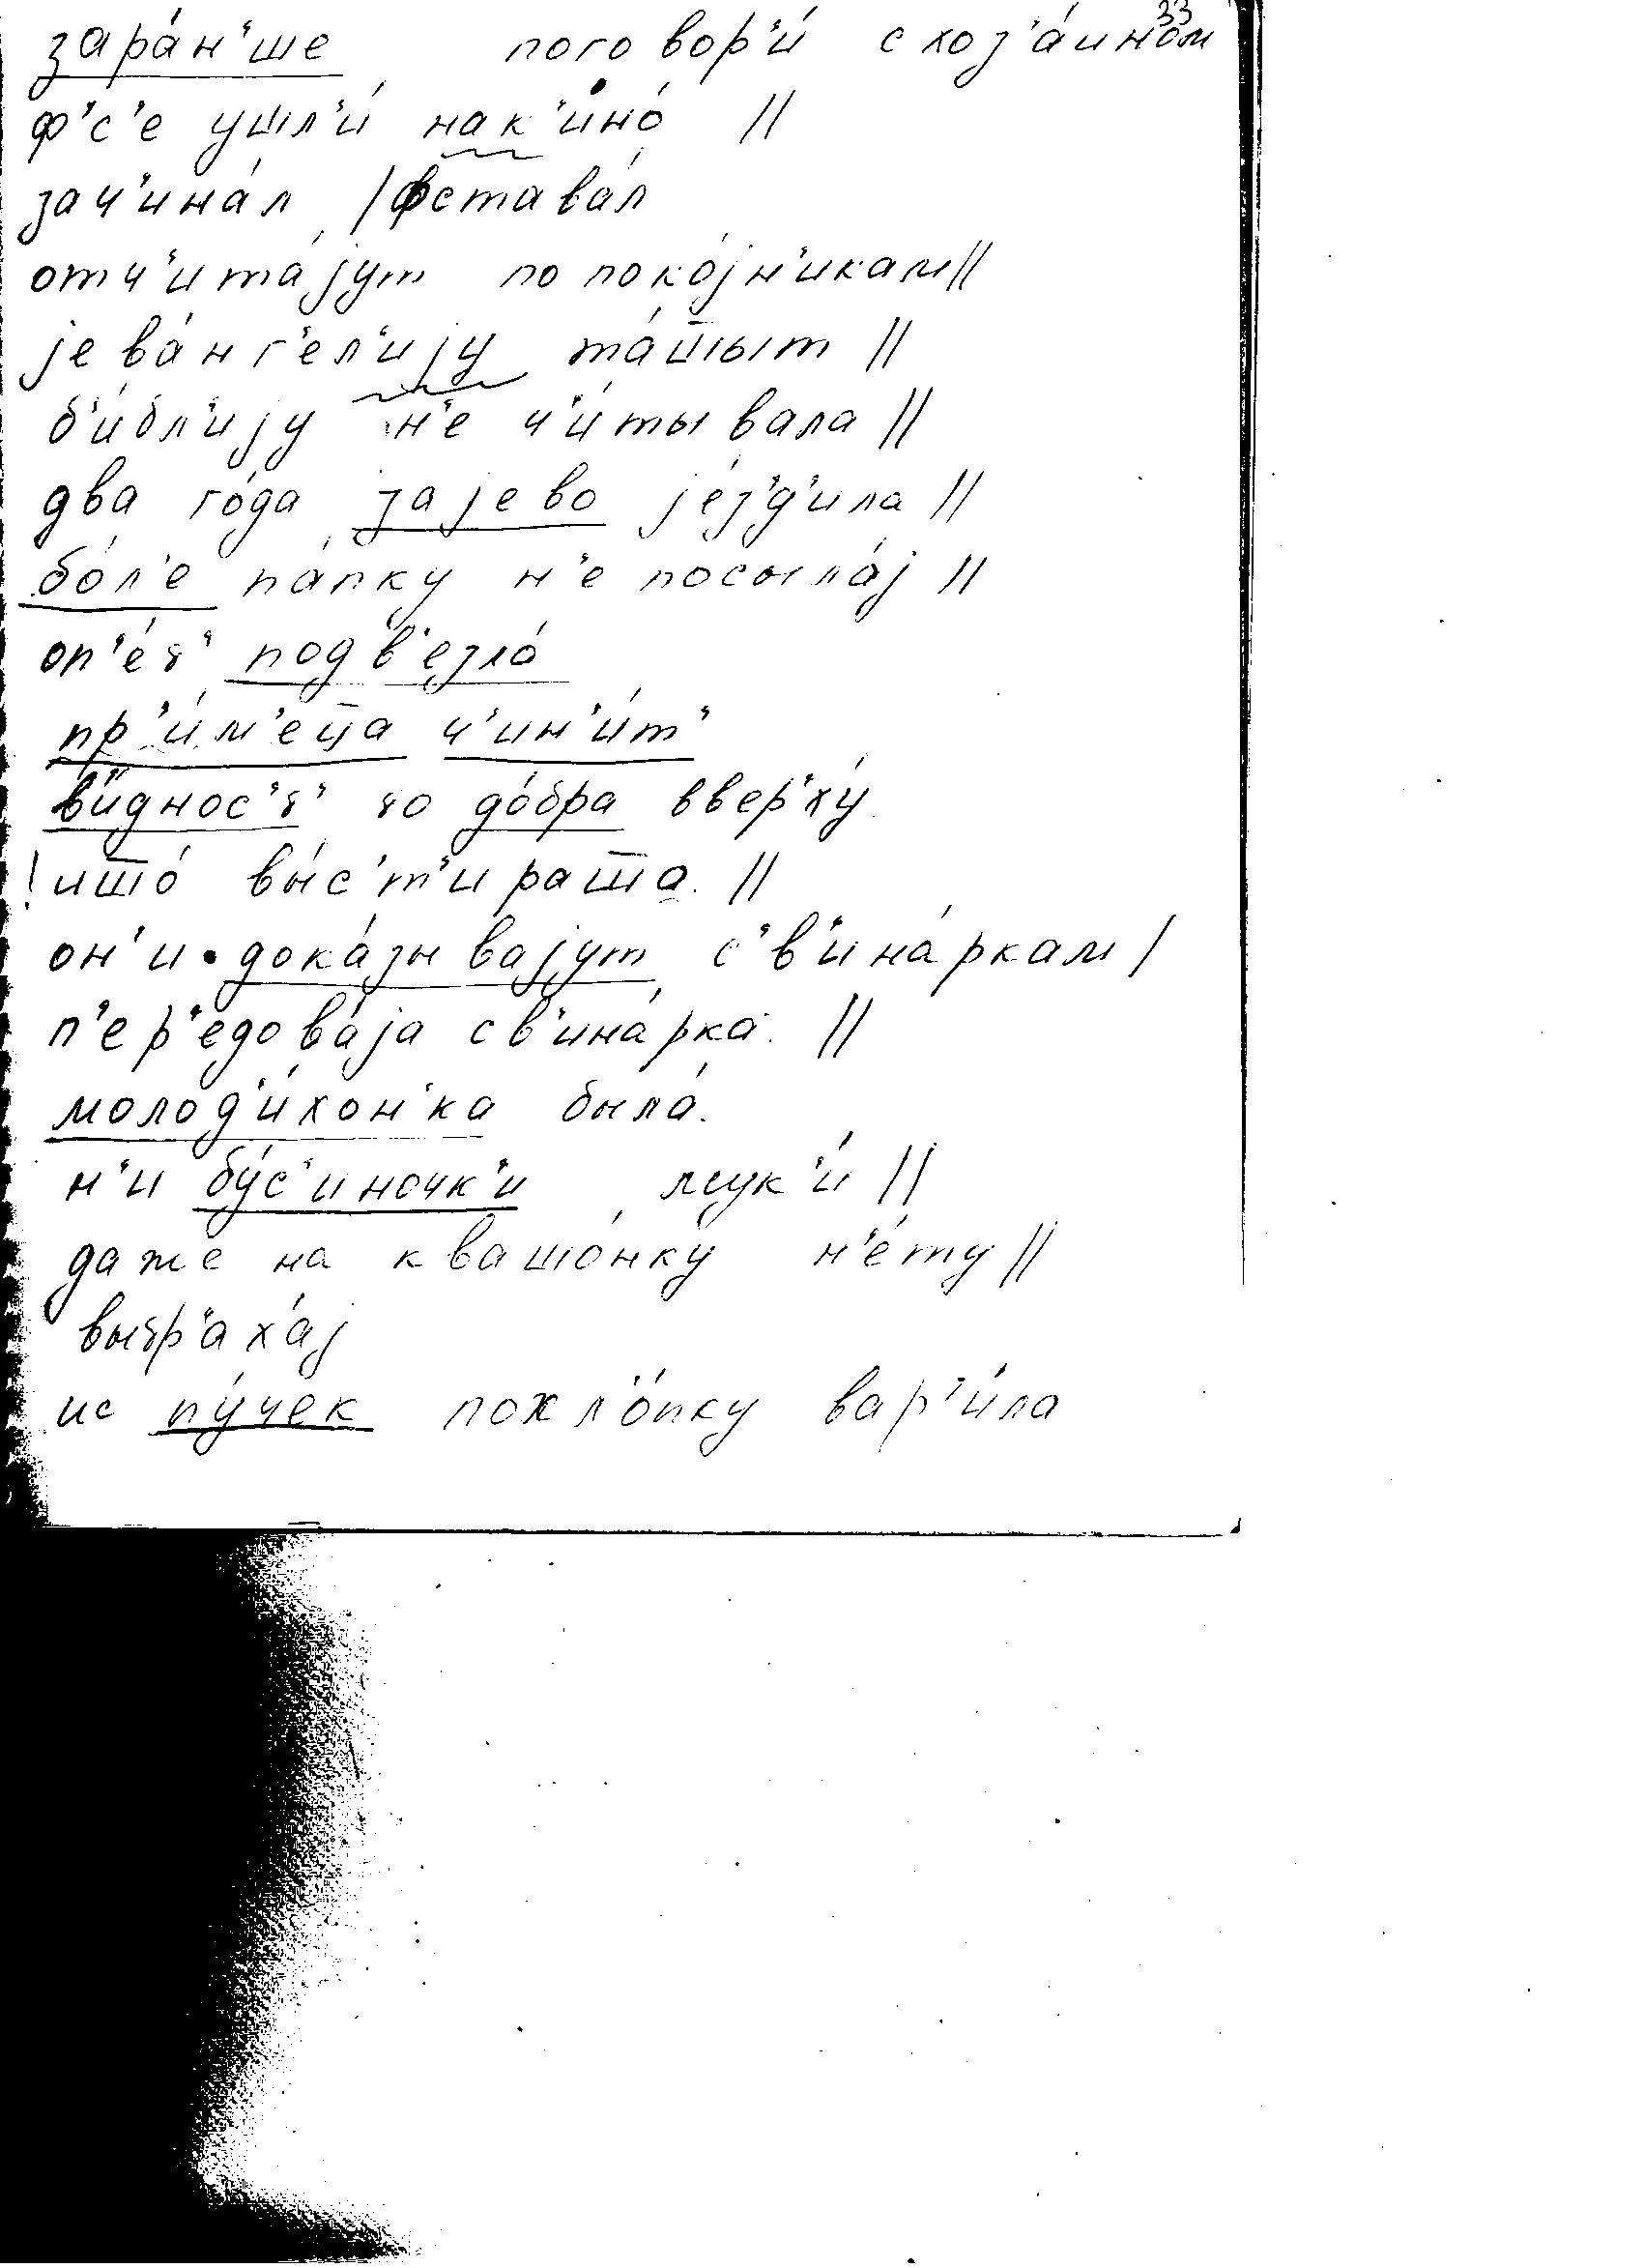 33
зара́н'ше поговор'и́ с хоз'а́ином
ф'с'е ушл'и́ нак'ино́ //
зач'ина́л /фстава́л
отч'ита́jут по поко́jн'икам //
jева́нг'ел'иjу та́шшыт //
б'и́бл'иjу н'е ч'и́тывала //
два го́да за jево jе́з'д'ила //
бо́л'е па́пку н'е посыла́j //
оп'е́т' подв'езло́
пр'и́м'еца ч'ин'и́т'
ви́днос'т' то до́бра ввер'ху́
ишшо́ вы́с'т'ирашша //
он'и дока́зывајут с'в'ина́ркам /
п'ер'едова́jа св'ина́рка //
молод'и́хон'ка была́.
н'и бу́с'иночк'и мук'и́ //
даже на квашо́нку н'е́ту //
вытр'аха́j
ис пу́чек похл'о́пку вар'и́ла